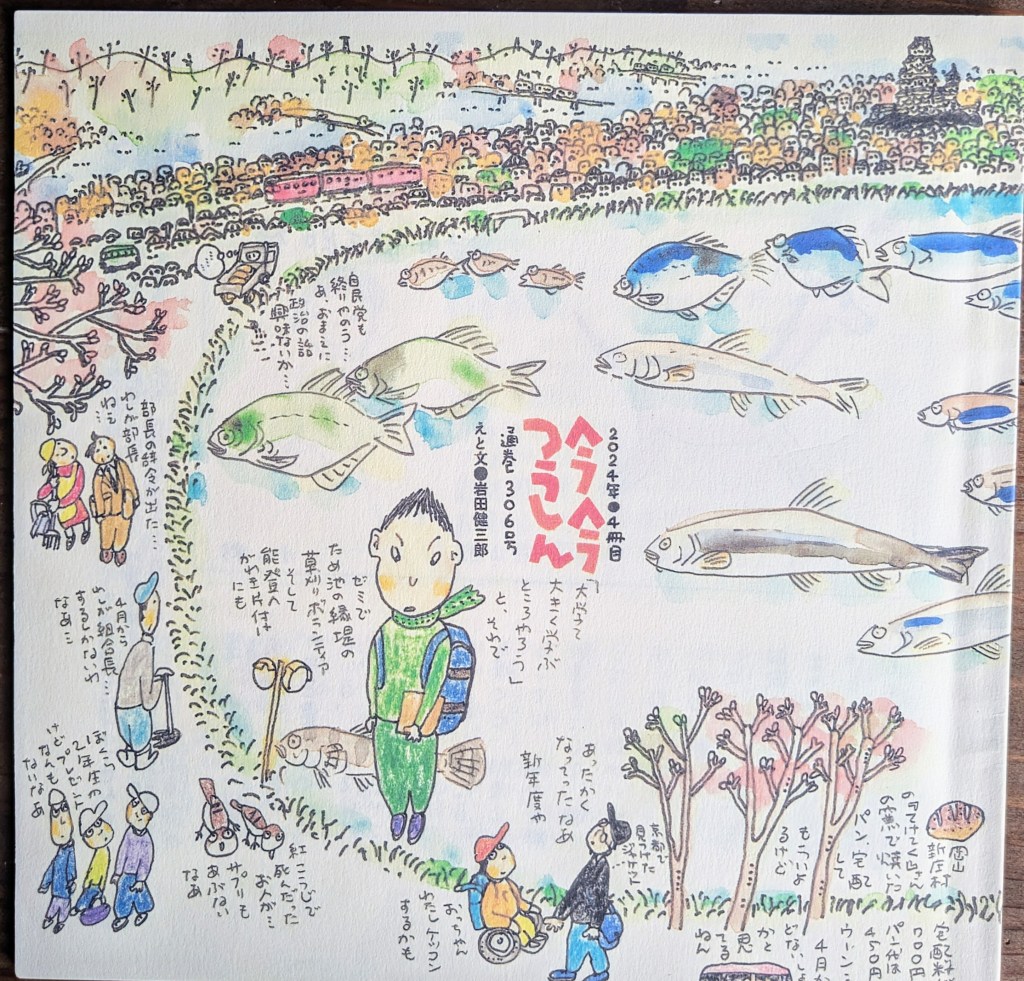 2024年●4冊目
ヘラヘラ
つうしん
通巻306号
えと文●岩田健三郎
自民党も
終りやのう…
あ、おまえに
政治の話
興味ないか…
部長の辞令が出た…
わしが部長
…ねぇ
4月から
わしが組合長…
するしかないわ
なぁ…
ぼくら
2年生や
けどプレゼント
なんも
ないなあ
「大学て
大きく学ぶ
ところやろう」
と、それで
ゼミで
ため池の縁堤の
草刈りボランティア
そして
能登へ
がれき片付け
にも
紅こうじで
死んだった
お人が…
サプリも
あぶない
なあ
あったかく
なってったなあ
新年度や
京都で
見つけた
ジャケット
おっちゃん
わたしケッコン
するかも
岡山
新庄村
の窯で焼いた
パン、宅配
して
もうてよ
るけど
宅配料
700円
パン代は
450円
ウーン…
4月か
どないしよ
かと
思
てる
ねん